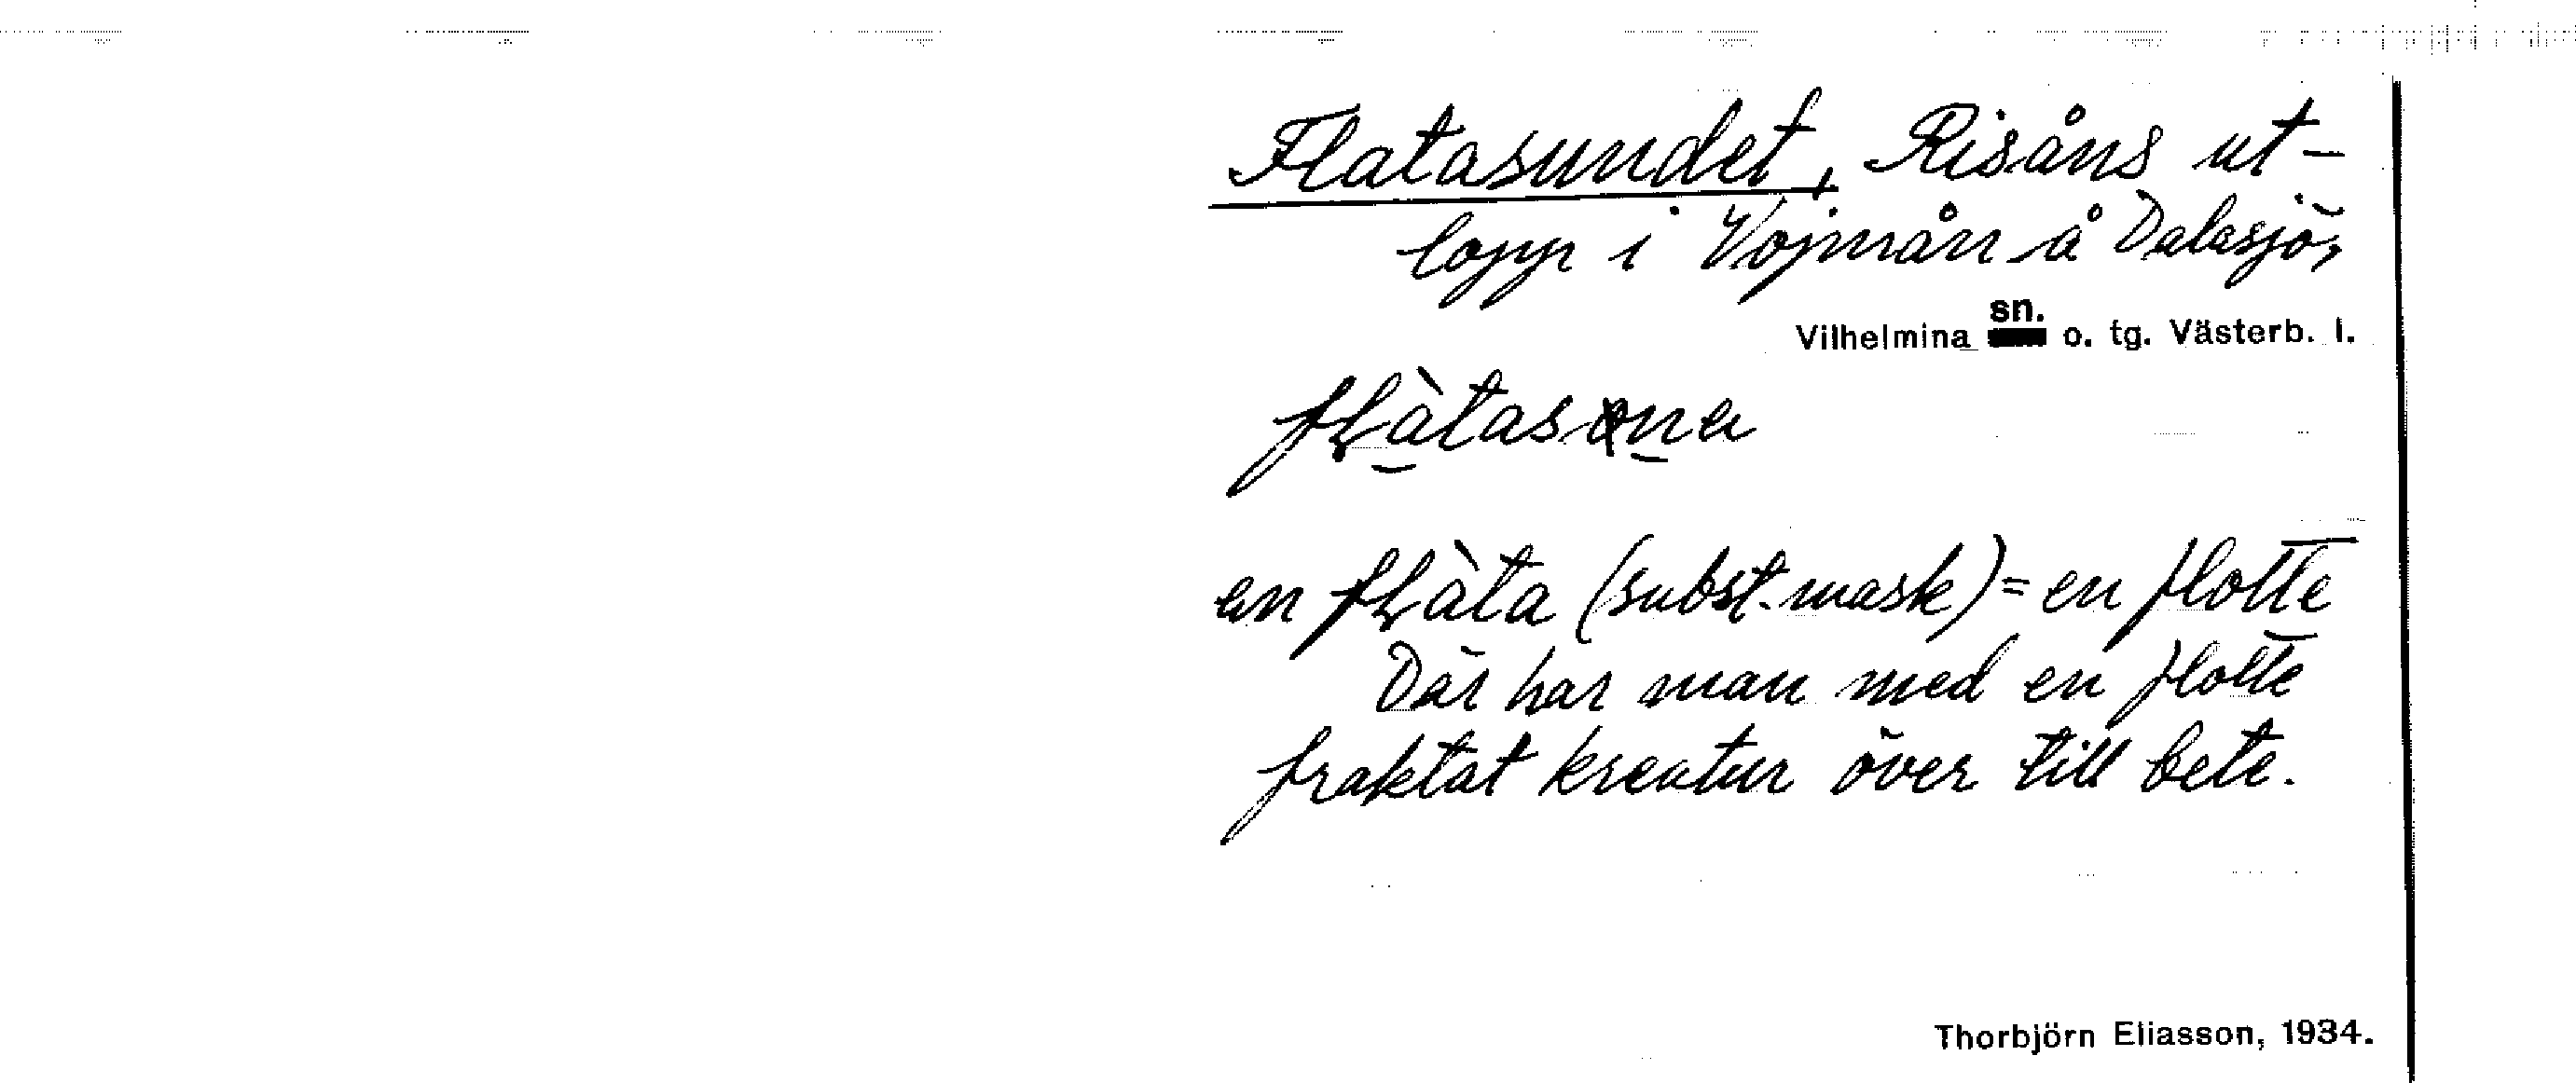 Flatasundet, Risåns ut-
lopp i Vojmån å Dalasjö,
Vilhelmina sn. o. tg. Västerb. l.
en flàta (subst. mask) = en flotte
Där har man med en flotte
fraktat kreatur över till bete.
Thorbjörn Eliasson, 1934.